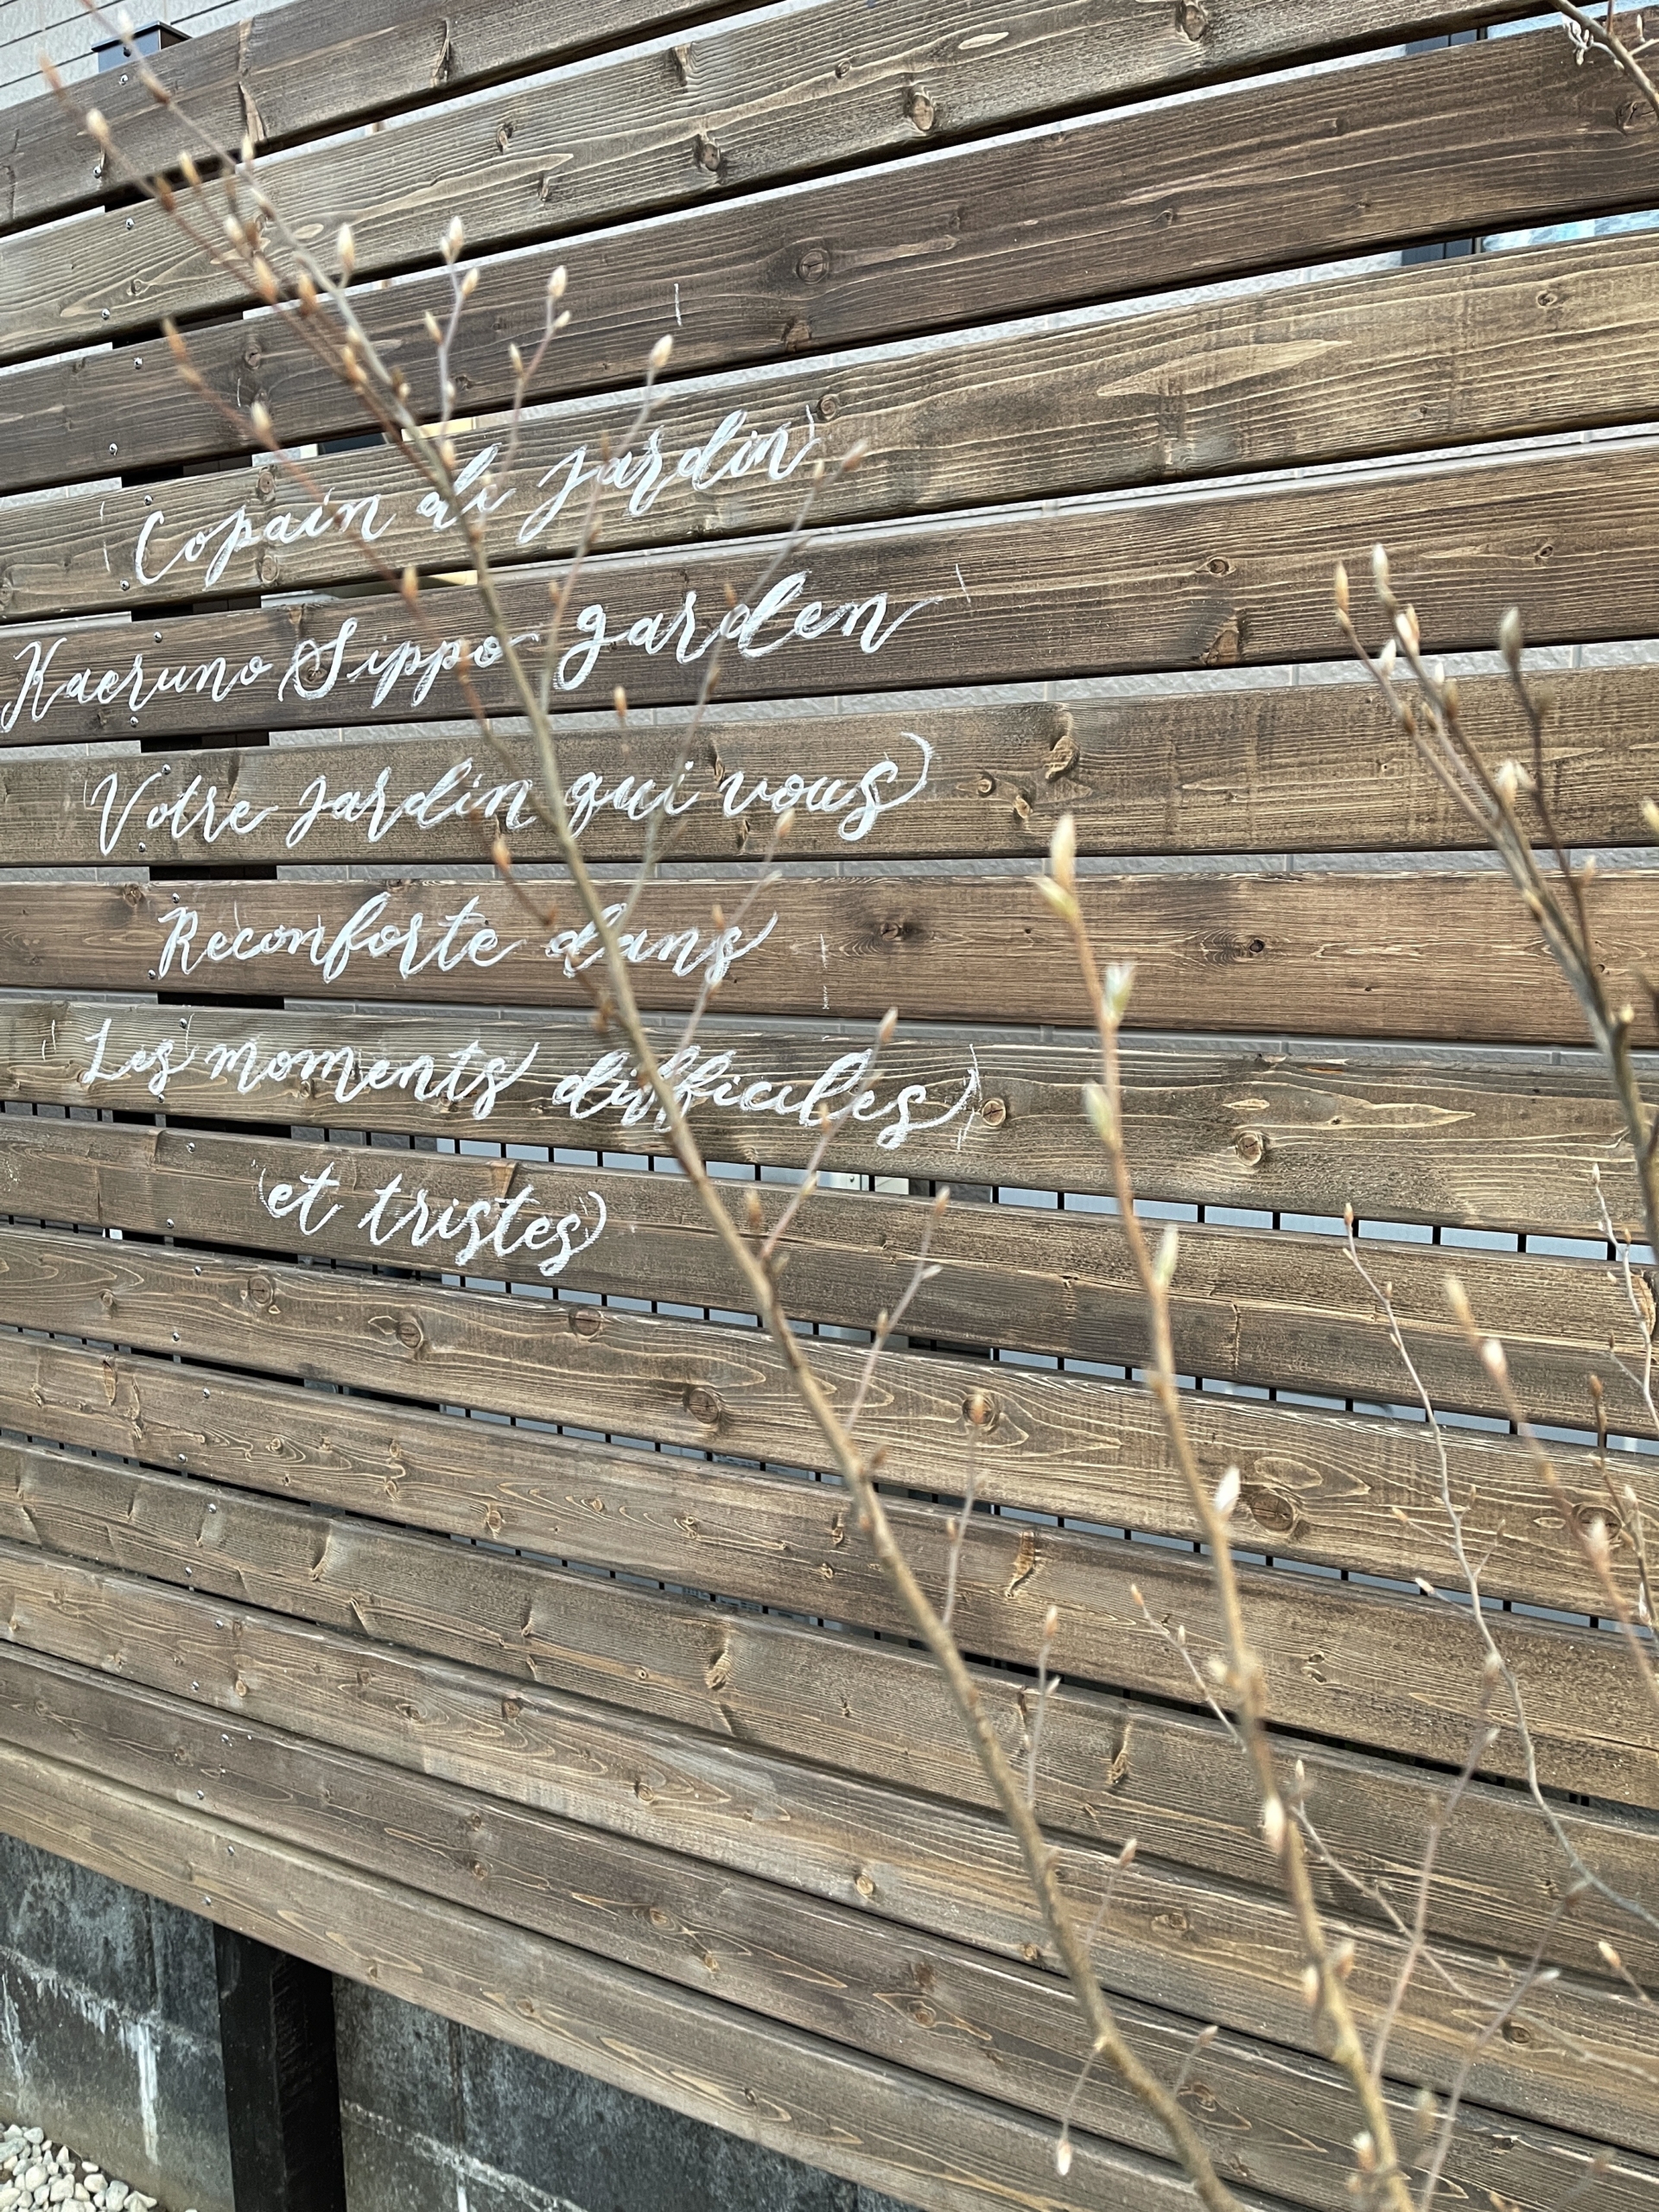 Copain de jardin
Kaeruno Sippo garden
Votre jardin qui vous
Reconforte dans
Les moments difficiles
et tristes